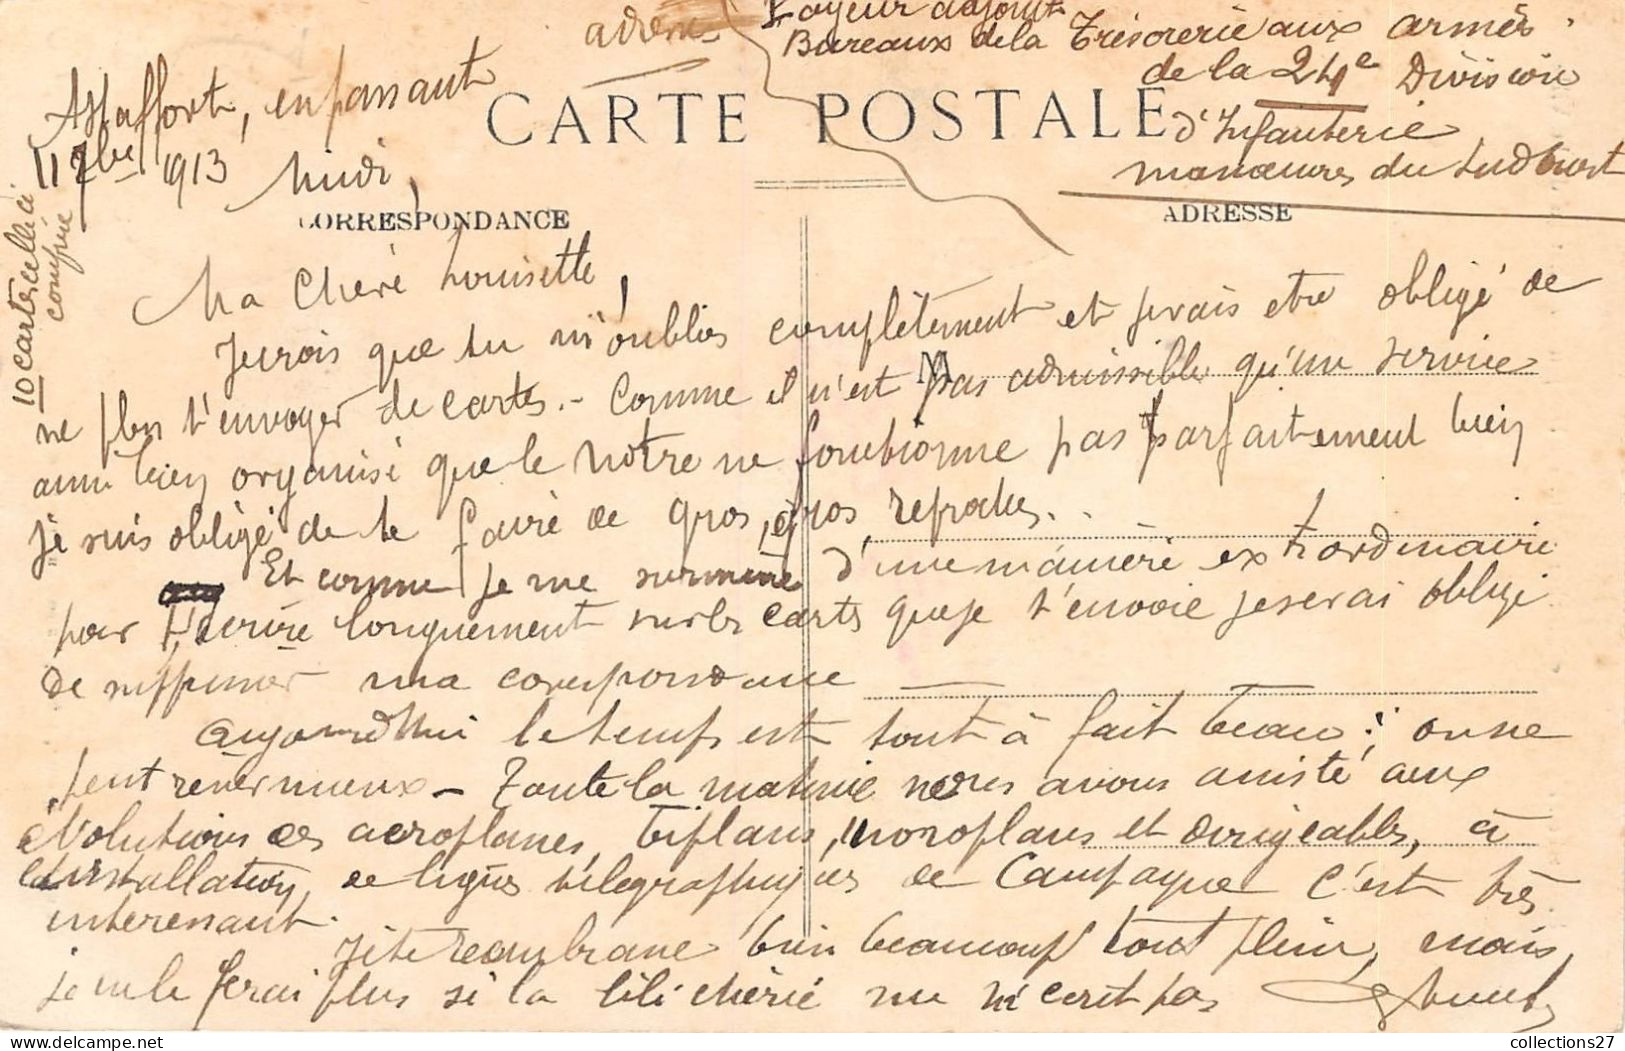 adresse
Payeur adjoint
Bureaux de la Trésorerie aux armées.
de la 24e Division
d'Infanterie
manœuvres du Sud Ouest
Astaffort, en passant
11 7bre 1913
Midi,
10 cartes celle ci
comprise
CARTE POSTALE
CORRESPONDANCE
ADRESSE
Ma Chère Louisette,
Je crois que tu m'oublies complètement et je vais etre obligé de
ne plus t'envoyer de cartes. - Comme il n'est pas admissible qu'un service
aussi bien organisé que le notre ne fonctionne pas parfaitement bien
je suis obligé de te faire de gros, gros reproches..
Et comme je me surmène d'une manière extraordinaire
pour t'écrire longuement sur les cartes que je t'envoie je serai obligé
de supprimer ma correspondance
Aujourd'hui le temps est tout à fait beau; on ne
peut rêver mieux - Toute la matinée nous avons assisté aux
évolutions des aeroplanes, biplans, monoplans et dirigeables, à
l'installation de lignes télégraphiques de Campagne c'est très
interessant.
Je te reembrasse bien beaucoup tout plein, mais
je ne le ferai plus si la lili chérie ne m'écrit pas
collections27